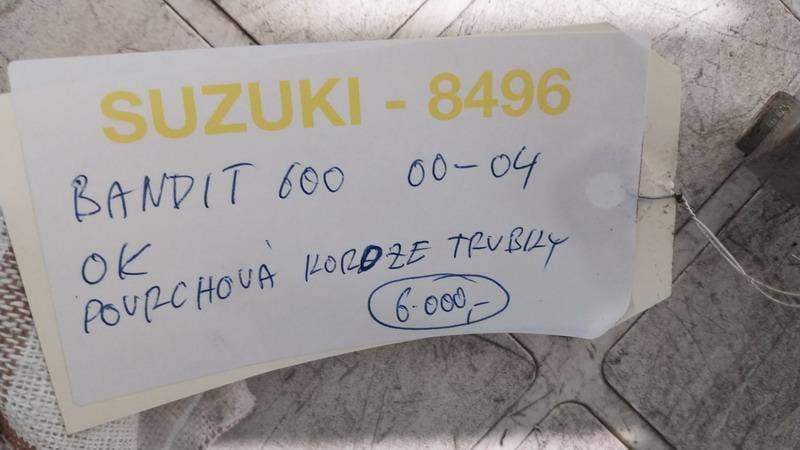 SUZUKI - 8496
BANDIT 600 00-04
OK
POVRCHOVÁ KORDZE TRUBKY
6.000,-